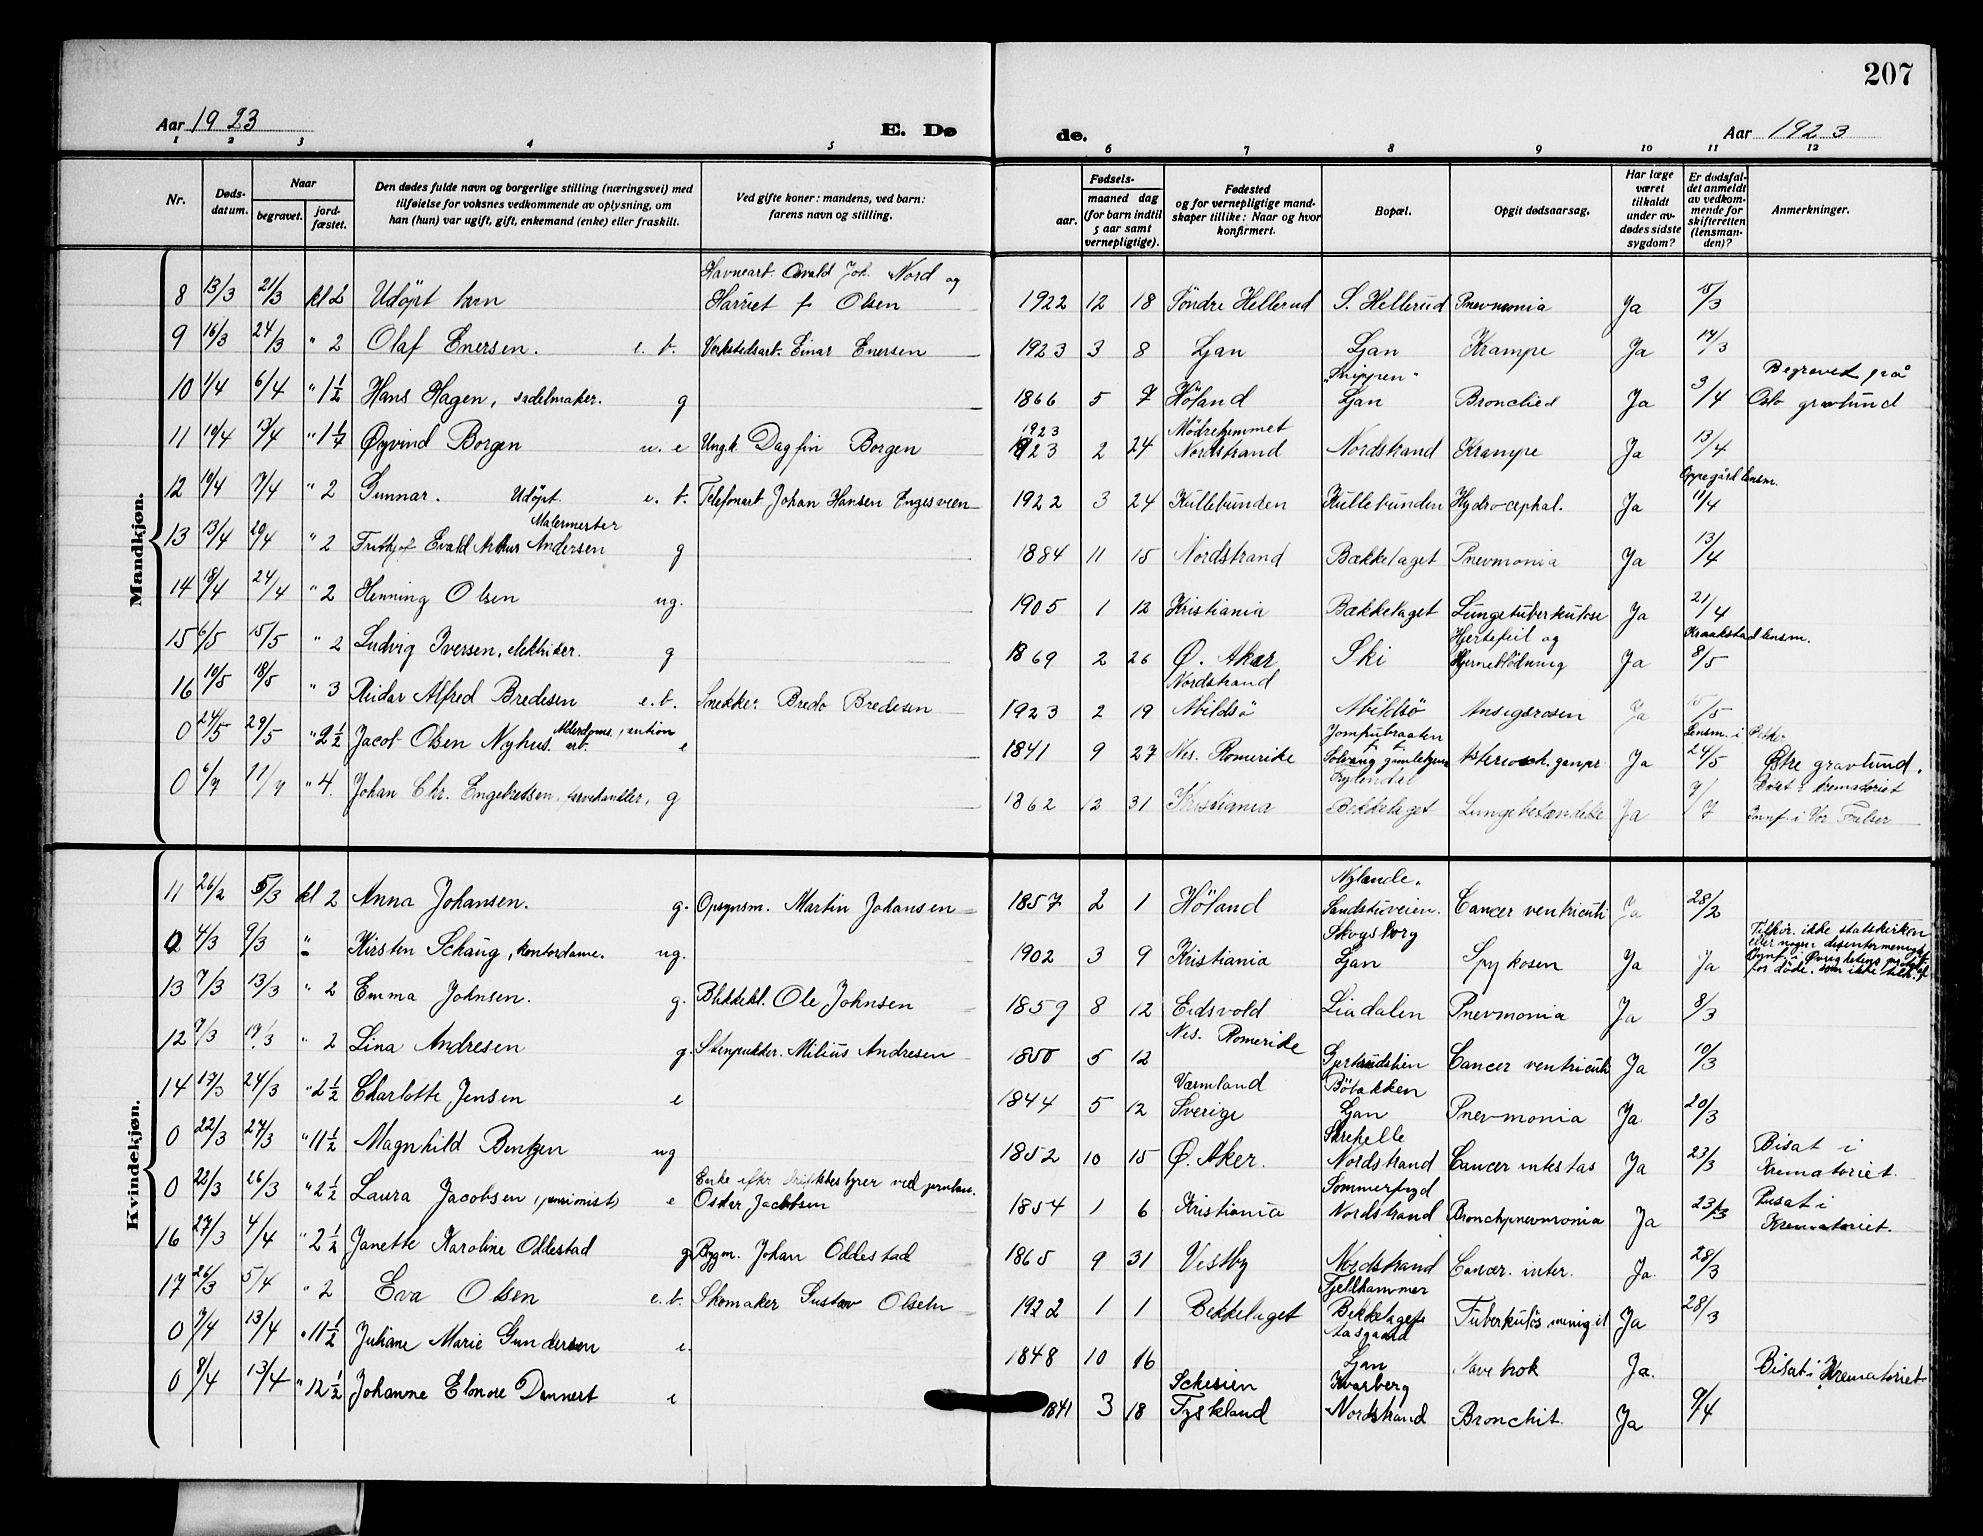 207
Aar 1923 E. Dø de. Aar 1923
1 2 3 4 5 6 7 8 9 10 11 12
Nr.
Døds-datum.
Naar
begravet.
jord-fæstet.
Den dødes fulde navn og borgerlige stilling (næringsvei) med
tilføielse for voksnes vedkommende av oplysning, om
han (hun) var ugift, gift, enkemand (enke) eller fraskilt.
Ved gifte koner: mandens, ved barn:
farens navn og stilling.
Fødsels-
aar.
maaned dag
(for barn indtil
5 aar samt
vernepligtige).
Fødested
og for vernepligtige mand-
skaper tillike: Naar og hvor
konfirmert.
Bopæl.
Opgit dødsaarsag.
Har læge
været
tilkaldt
under av-
dødes sidste
sygdom?
Er dødsfal-
det anmeldt
av vedkom-
mende for
skifteretten
(lensman-
den)?
Anmerkninger.
Mandkjøn.
Havneart. Osvald Joh. Nord og
8 13/3 21/3 kl 2 Udöpt barn Harriet f. Olsen 1922 12 18 Söndre Hellerud S. Hellerud Pnevmonia Ja 15/3
9 16/3 24/3 " 2 Olaf Enersen. e. b. Verkstedsarb. Einar Enersen 1923 3 8 Ljan Ljan Krampe Ja 17/3
10 1/4 6/4 " 1½ Hans Hagen, sadelmaker. g 1866 5 7 Höland Ljan Ja 3/4 Begravet på
Oslo gravlund
11 10/4 " Øyvind Borgen u. e Ungk. Dagfin Borgen 1923 2 24 Mødrehjemmet
Nordstrand Nordstrand Krampe Ja 13/4
Oppegård lensm.
12 10/4 " 2 Gunnar. Udöpt e. b. Telefonarb. Johan Hansen Engesveen 1922 3 24 Kullebunden Kullebunden Hydrocephal. Ja 11/4
Malermester
13 13/4 20/4 " 2 Frithjof Evald Arthur Andersen g 1884 11 15 Nordstrand Bækkelaget Pnevmonia Ja 13/4
14 18/4 24/4 " 2 Henning Olsen ug. 1905 1 12 Kristiania Bækkelaget Lungetuberkulose Ja 21/4
Hjertefeil og Kraakstad lensm.
15 6/5 15/5 " 2 Ludvig Iversen, elektriker. g 1869 2 26 Ø. Aker Ski Hjerneblödning Ja 8/5
Nordstrand
16 10/5 18/5 " 3 Reidar Alfred Bredesen e. b. Snekker Bredo Bredesen 1923 2 19 Abildsö Abildsö Ja
0 24/5 29/5 " 2½ Jacob Olsen Nyhus. e 1841 9 27 Nes. Romerike Solvang gamlehjem Ja 24/5 Østre gravlund.
0 6/7 11/7 " 4. Johan Chr. Engebretsen, farvehandler, g 1862 12 31 Kristiania Bekkelaget Lungebetændelse Ja 7/7 Bisat i krematoriet
Innf. i Vor Frelser
Kvindekjøn.
11 26/2 5/3 kl 2 Anna Johansen. g. Opsynsm. Martin Johansen 1857 2 1 Höland Nylende.
Sandstuveien. Cancer ventriculi Ja 28/2
4/3 9/3 " Kirsten Schaug, kontordame. ug. 1902 3 9 Kristiania Skogsborg
Ljan Ja Ja Tilhör. ikke statskirken
eller nogen dissentermenigh.
13 7/3 13/3 " 2 Emma Johnsen. g. Blikkesl. Ole Johnsen 1859 8 12 Eidsvold Lindalen Pnevmonia Ja 8/3
12 7/3 " 2 Lina Andresen g. Stenpukker. Milius Andresen 5 12 Nes. Romerike Cancer ventriculi Ja 10/3
14 17/3 24/3 " 2½ Charlotte Jensen e 1844 5 12 Værmland
Sverige Böbakken
Ljan Pnevmonia Ja 20/3
0 22/3 27/3 " 11½ Magnhild Bentzen ug 1852 10 15 Ø. Aker. Nordstrand Cancer intestas Ja 23/3 Bisat i
Krematoriet.
0 22/3 26/3 " 2½ Laura Jacobsen, pensionist, e Enke efter driftsbestyrer ved jernban.
Oskar Jacobsen 1854 1 6 Kristiania Sommerfryd
Nordstrand Bronchpnevmonia Ja 23/3 Bisat i
Krematoriet.
16 27/3 4/4 " 2½ Janette Karoline Oddestad g Bygm. Johan Oddestad 1865 9 31 Vestby Nordstrand Cancer. inter. Ja. 28/3
17 26/3 5/4 " 2 Eva Olsen e. b. Skomaker Gustav Olsen 1922 1 1 Bekkelaget Fjellhammer
Bekkelaget Tuberkulös mening it Ja 28/3
0 7/4 13/4 " 11½ Juliane Marie Gundersen e. 1848 10 16 Aasgaard
Ljan Ja. Bisat i Krematoriet
0 8/4 13/4 " 12½ Johanne Elonore Dannert e 1841 3 18 Schesien
Tyskland Kvarberg
Nordstrand Bronchit. Ja 9/4